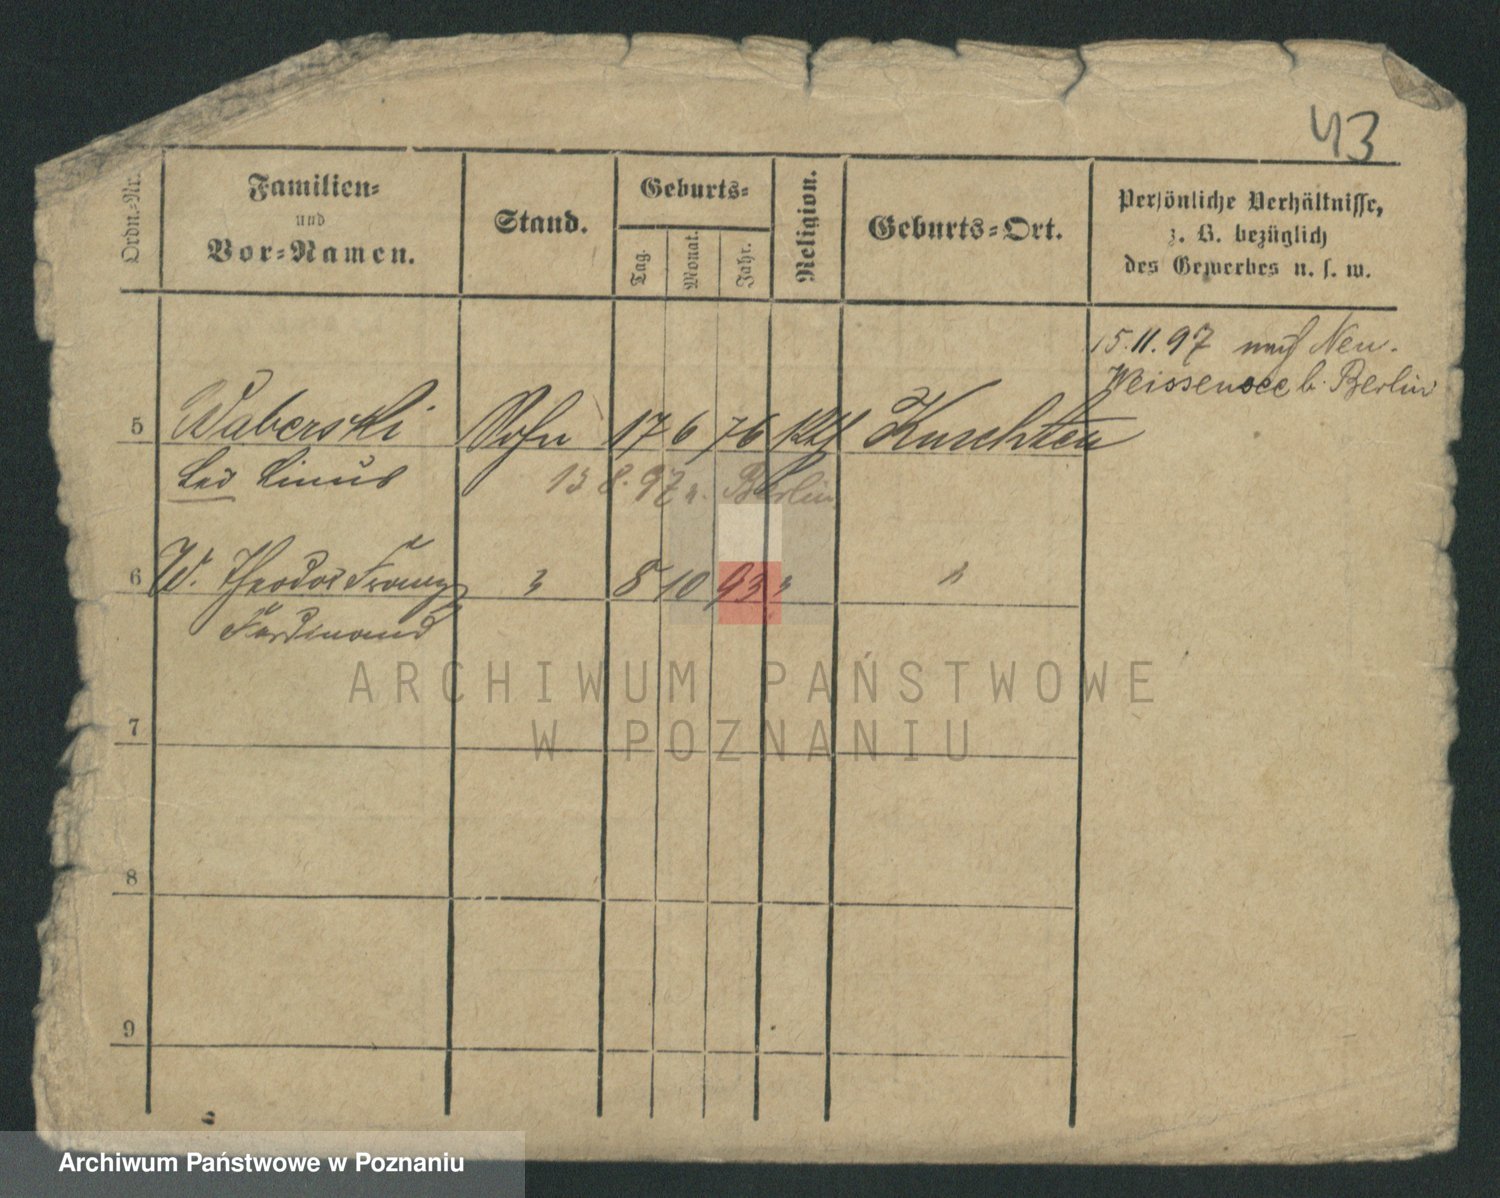 43
Ordn.-Nr.
Familien-
und
Vor-Namen.
Stand.
Geburts-
Tag.
Monat.
Jahr.
Religion.
Geburts-Ort.
Persönliche Verhältnisse,
z. B. bezüglich
des Gewerbes u. s. w.
15.11.97 nach Neu-
Weissensee b. Berlin
5 Waberski Sohn 17 6 76 kth Kuschten
Leo Linus
13 8. 97 n. Berlin
6 W. Theodor Franz " 8 10 93 " "
Ferdinand
7
8
9
ARCHIWUM PAŃSTWOWE
W POZNANIU
Archiwum Państwowe w Poznaniu